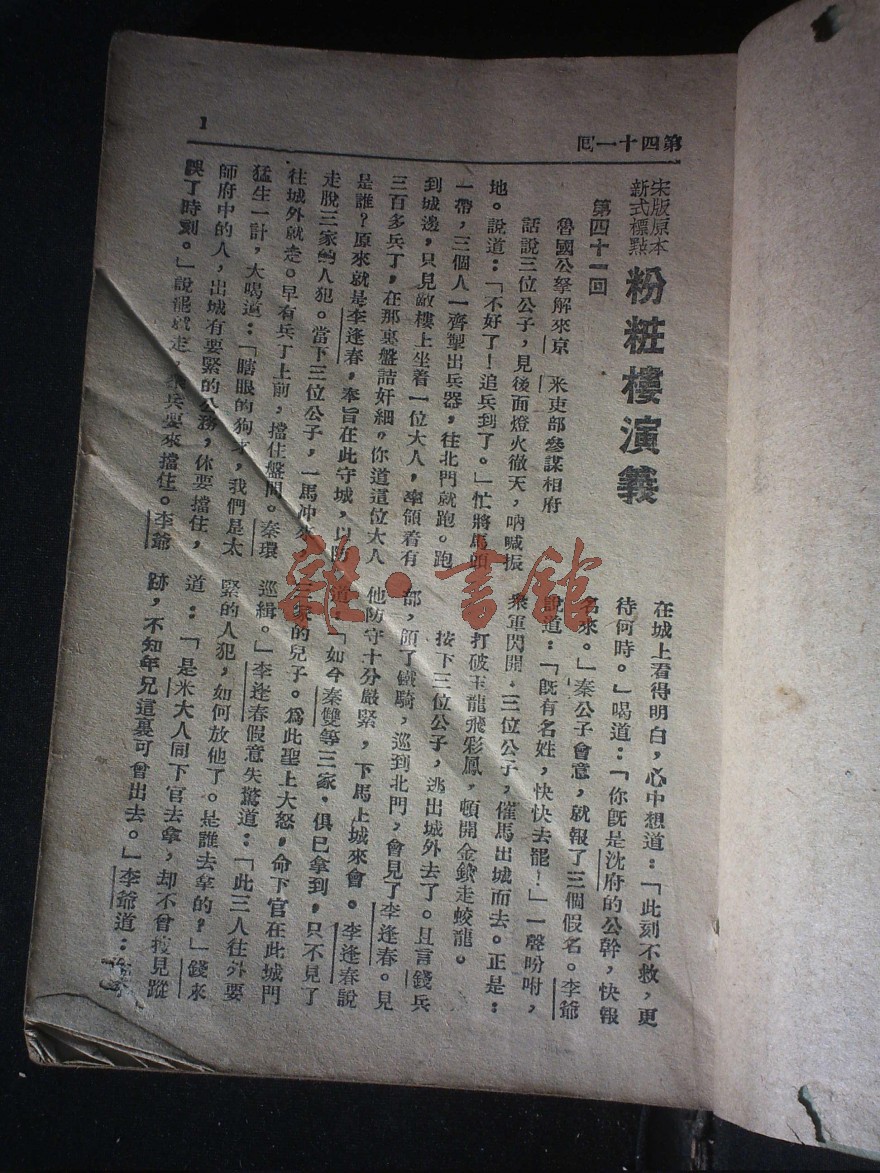 第四十一回
1
宋版原本
新式標點
粉粧樓演義
第四十一回
魯國公拏解來京　米吏部參謀相府
話說三位公子，見後面燈火徹天，吶喊振
地。說道：「不好了！追兵到了。」忙將馬頭
一帶，三個人一齊掣出兵器，往北門就跑。跑
到城邊，只見敵樓上坐着一位大人，率領着有
三百多兵丁，在那裏盤詰奸細。你道這位大人
是誰？原來就是李逢春，奉旨在此守城，以防
走脫三家的人犯。當下三位公子，一馬冲來
往城外就走。早有兵丁上前，擋住盤問。秦環
猛生一計，大喝道：「瞎眼的狗才，我們是太
師府中的人，出城有要緊的公務，休要擋住，
誤了時刻。」說罷就走，衆兵要來擋住。李爺
在城上看得明白，心中想道：「此刻不救，更
待何時。」喝道：「你旣是沈府的公幹，快報
名來。」秦公子會意，就報了三個假名。李爺
說道：「旣有名姓，快快去罷！」一聲吩咐，
衆軍閃開，三位公子，催馬出城而去。正是：
打破玉龍飛彩鳳，頓開金鎖走蛟龍。
按下三位公子，逃出城外去了。且言錢兵
部，領了鐵騎，巡到北門，會見了李逢春。見
他防守十分嚴緊，下馬上城來會。李逢春說
道，「如今秦雙等三家，俱已拿到，只不見了
三家的兒子。爲此聖上大怒，命下官在此城門
巡緝。」李逢春假意失驚道：「此三人往外要
緊的人犯，如何放他了。是誰去拿的？」錢來
道：「是米大人同下官去拿，却不曾找見蹤
跡，不知年兄這裏可曾出去。」李爺道：
雜·書館